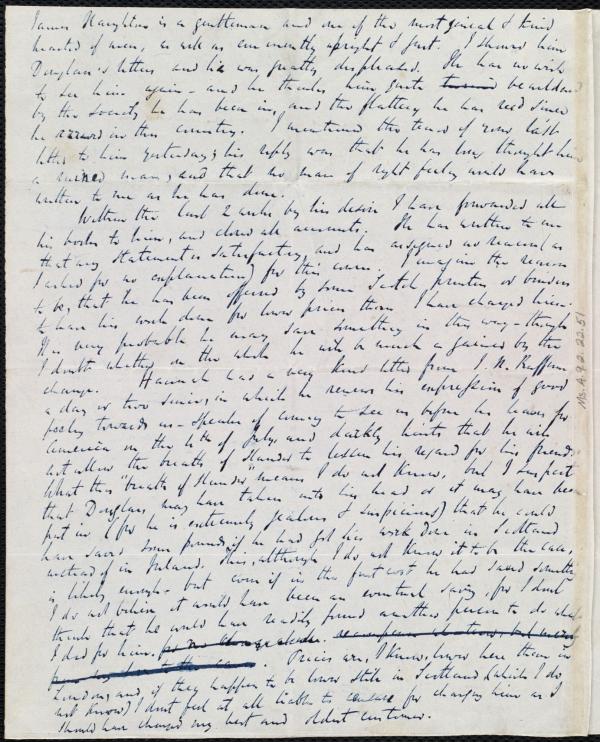 James Haughton is a gentleman and one of the most genial & kind
hearted of men, as well as eminently upright & just. I showed him
Douglass's letters and he was greatly displeased. He has no wish
to see him again - and he thinks him quite bewildered
by the society he has been in, and the flattery he has rec'd since
he arrived in this country. I mentioned the tenor of your last
letter to him yesterday; his reply was that he has long thought him
a ruined man, and that no man of right feeling would have
written to me as he has done.
Within the last 2 weeks by his desire I have forwarded all
his books to him, and closed all accounts. He has written to me
that my statement is satisfactory, and has assigned no reason (as
I asked for no explanation) for this course. I imagine the reason
to be, that he has been offered by some Scotch printers or binders
to have his work done for lower prices than I have charged him.
It is very probable he may save something in this way - though
I doubt whether on the whole he will be much a gainer by the
change. Hannah had a very kind letter from J. N. Buffum
a day or two since, in which he renews his expression of good
feeling towards us - speaks of coming to see us before he leaves for
America on the 4th of July, and darkly hints that he will
not allow the breath of slander to lessen his regard for his friends.
What this "breath of slander" means I do not know, but I suspect
that Douglass may have taken into his head or it may have been
put in (for he is extremely jealous & suspicious) that he could
have saved some pounds if he had got his work done in Scotland
instead of in Ireland. This, although I do not know it to be the case,
is likely enough - but even if in the first cost he had saved something
I do not believe it would have been an eventual saving, for I don't
think that he would have readily found another person to do what
I did for him.
Prices are, I know, lower here than in
London, and, if they happen to be lower still in Scotland (which I do
not know) I don't feel at all liable to censure for charging him as I
should have charged my best and oldest customer.
Ms. A. 9. 2. 22. 51